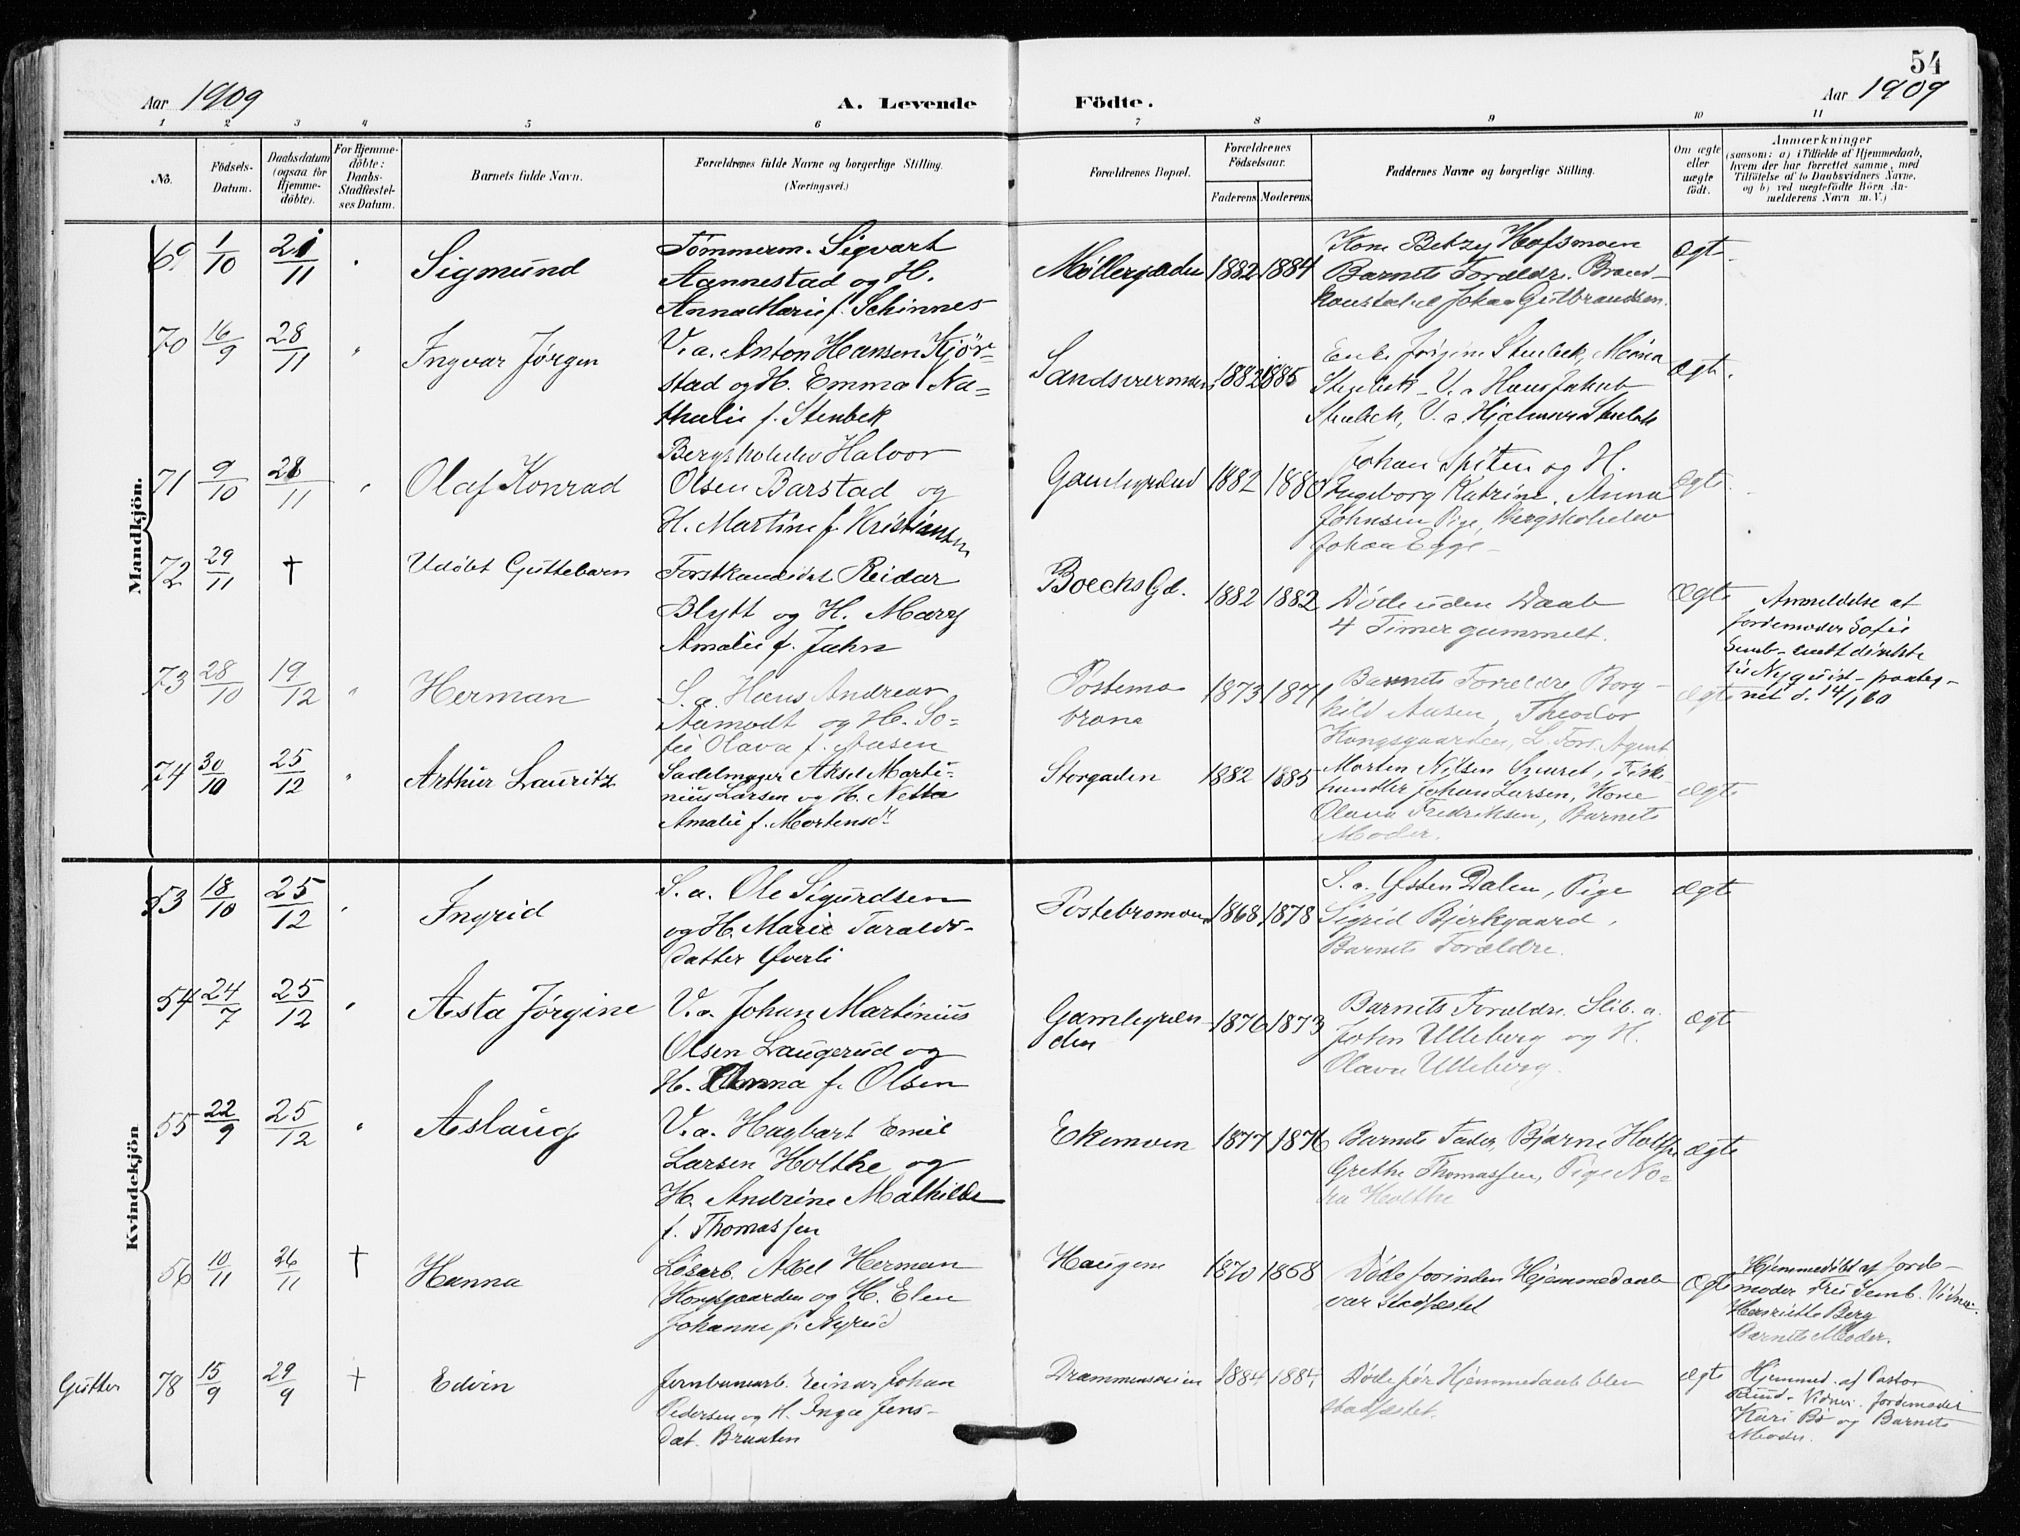 54
Aar 1909
A. Levende
Födte.
Aar 1909
1 2 3 4 5 6 7 8 9 10 11
No.
Födsels-
Datum.
Daabsdatum
(ogsaa for
Hjemme-
döbte).
For Hjemme-
döbte:
Daabs-
Stadfæstel-
ses Datum.
Barnets fulde Navn.
Forældrenes fulde Navne og borgerlige Stilling.
(Næringsvei.)
Forældrenes Bopæl.
Forældrenes
Födselsaar.
Faderens
Moderens.
Faddernes Navne og borgerlige Stilling.
Om ægte
eller
uægte
födt.
Anmærkninger
(saasom: a) i Tilfælde af Hjemmedaab,
hvem der har forrettet samme, med
Tilföielse af to Daabsvidners Navne,
og b) ved uægtefödte Börn An-
melderens Navn m. V.)
Mandkjön.
69 1/10 21/11 Sigmund
Tömmerm. Sigvart
Aannestad og H.
Anna Marie f. Schinnes
Møllergaden 1882 1884
Kone Betzy Hofsmoen
Barnets Forældre. Brand-
konstabel Johan Gulbrandsen.
Ægte
70 16/9 28/11 " Ingvar Jørgen
V.a. Anton Hansen Kjør-
stad og H. Emma Na-
thalie f. Stenbek
1882 1885
Enke Jørgine Stenbek,
Stenbek V. a Hans Jakob
Stenbek, V. a. Hjalmar Stenbek
Ægte.
71 9/10 28/11 " Olaf Konrad
Bergskolelev Halvor
Olsen Barstad og
H. Martine f. Kristiansen
Gamlegrænd 1882 1880
Johan Spiten og H.
Ingeborg Katrine. Anna
Johnsen Pige, Bergskolelev
Johan Egge
Ægte
72 29/11 † Udøbt Guttebarn
Forstkandidat Reidar
Blytt og H. Mary
Amalie f. Juhn
Boechs Gd. 1882 1882
Døde uden Daab
4 Timer gammelt.
Ægte
Anmeldelse at
Jordemoder Sofie
73 28/10 19/12 " Herman
S. a. Hans Andreas
Aamodt og H. So-
fie Olava f. Aasen
Postemo
brona
1873 1871
Barnets Forældre, Borg-
hild Aasen, Theodor
Kongsgaarden, L. Fors. Agent
Ægte
net d. 14/1 60
74 30/10 25/12 " Arthur Lauritz
Sadelmager Aksel Marti-
nius Larsen og H. Netta
Amalie f. Mortensd.
Storgaden 1882 1885
Morten Nilsen Fisk-
handler Johan Larsen, Kone
Olava Fredriksen, Barnets
Moder.
Ægte
Kvindekjön
53 18/10 25/12 Ingrid
S. a. Ole Sigurdsen
og H. Marie Taralds-
datter Øverli
Postebromoen 1868 1878
S. a. Østen Dalen, Pige
Sigrid Bjerkgaard,
Barnets Forældre.
Ægte
54 24/7 25/12 " Asta Jørgine
V. a. Johan Martinius
Olsen Laugerud og
H. Anna f. Olsen
Gamlegræn-
den
1876 1873
Barnets Forældre, Slib. a.
John Ulleberg og H.
Olava Ulleberg.
Ægte
55 22/9 25/12 " Aslaug
V. a. Hagbart Emil
Larsen Holthe og
H. Andrine Mathilde
f. Thomassen
Ekemoen 1877 1876
Barnets Fader, Bjarne Holthe
Grethe Thomassen, Pige No-
ra Holthe
Ægte
56 10/11 26/11 † Hanna
Løsarb. Axel Herman
Kongsgaarden og H. Elen
Johanne f. Myrud
Haugene 1870 1868
Døde forinden Hjemmedaab
var stadfæstet
Ægte
Hjemmedøbt af Jorde-
moder Fru Semb. Vidner
Henriette Berg
Barnets Moder.
Gutter 78 15/9 29/9 † Edvin
Jernbanearb. Einar Johan
Pedersen og H. Inga Jens-
dat. Braaten
Drammensveien 1884 1884
Døde før Hjemmedaab blev
stadfæstet.
Ægte
Hjemmed. af Pastor
Ruud. Vidner Jordemoder
Kari Bø og Barnets
Moder.